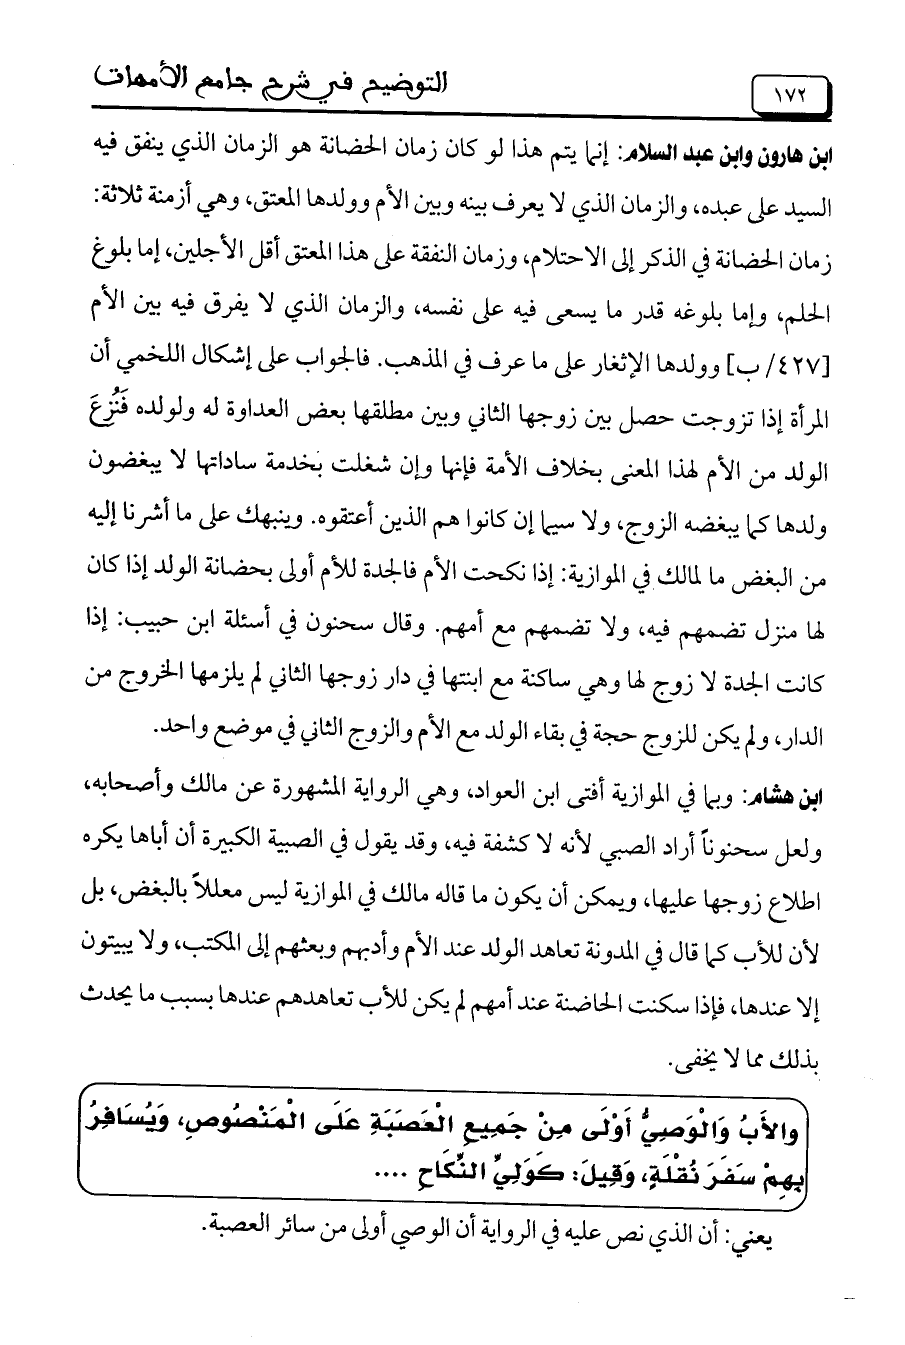 ١٧٢
التوضيح في شرح جامع الأمهات
ابن هارون وابن عبد السلام: إنما يتم هذا لو كان زمان الحضانة هو الزمان الذي ينفق فيه
السيد على عبده، والزمان الذي لا يعرف بينه وبين الأم وولدها المعتق، وهي أزمنة ثلاثة:
زمان الحضانة في الذكر إلى الاحتلام، وزمان النفقة على هذا المعتق أقل الأجلين، إما بلوغ
الحلم، وإما بلوغه قدر ما يسعى فيه على نفسه، والزمان الذي لا يفرق فيه بين الأم
[٤٢٧/ ب] وولدها الإثغار على ما عرف في المذهب. فالجواب على إشكال اللخمي أن
المرأة إذا تزوجت حصل بين زوجها الثاني وبين مطلقها بعض العداوة له ولولده فَنُزِعَ
الولد من الأم لهذا المعنى بخلاف الأمة فإنها وإن شغلت بخدمة ساداتها لا يبغضون
ولدها كما يبغضه الزوج، ولا سيما إن كانوا هم الذين أعتقوه. وينبهك على ما أشرنا إليه
من البغض ما لمالك في الموازية: إذا نكحت الأم فالجدة للأم أولى بحضانة الولد إذا كان
لها منزل تضمهم فيه، ولا تضمهم مع أمهم. وقال سحنون في أسئلة ابن حبيب: إذا
كانت الجدة لا زوج لها وهي ساكنة مع ابنتها في دار زوجها الثاني لم يلزمها الخروج من
الدار، ولم يكن للزوج حجة في بقاء الولد مع الأم والزوج الثاني في موضع واحد.
ابن هشام: وبما في الموازية أفتى ابن العواد، وهي الرواية المشهورة عن مالك وأصحابه،
ولعل سحنوناً أراد الصبي لأنه لا كشفة فيه، وقد يقول في الصبية الكبيرة أن أباها يكره
اطلاع زوجها عليها، ويمكن أن يكون ما قاله مالك في الموازية ليس معللاً بالبغض، بل
لأن للأب كما قال في المدونة تعاهد الولد عند الأم وأدبهم وبعثهم إلى المكتب، ولا يبيتون
إلا عندها، فإذا سكنت الحاضنة عند أمهم لم يكن للأب تعاهدهم عندها بسبب ما يحدث
بذلك مما لا يخفى.
والأَبُ وَالْوَصِيُّ أَوْلَى مِنْ جَمِيعِ الْعَصَبَةِ عَلَى الْمَنْصُوصِ، وَيُسَافِرُ
بِهِمْ سَفَرَ نُقْلَةٍ، وَقِيلَ: كَوَلِيِّ النِّكَاحِ ....
يعني: أن الذي نص عليه في الرواية أن الوصي أولى من سائر العصبة.